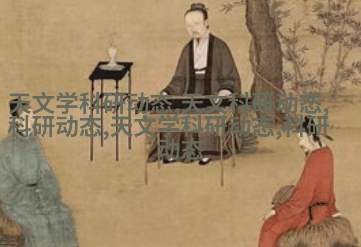 天文学科研动态,天文科研动态,
科研动态,天文学科研动态,科研
动态